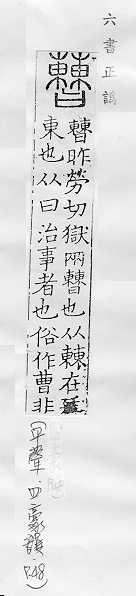 六書正譌
𣍘
𣍘昨勞切獄兩𣍘也从㯥在廷
東也从曰治事者也俗作曹非
(平聲.四豪韻.P.48)